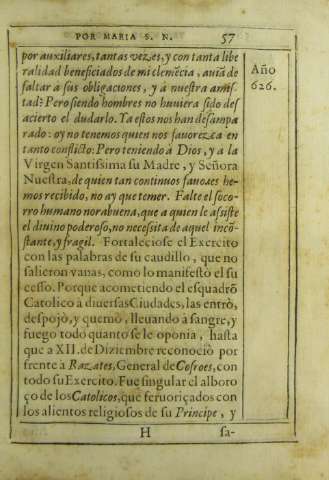 POR MARIA S. N. 57
por auxiliares, tantas vezes, y con tanta libe
ralidad beneficiados de mi clemẽcia, auiã de
faltar à sus obligaciones, y à nuestra amis-
tad? Pero siendo hombres no huviera sido des
acierto el dudarlo. Ya estos nos han desampa
rado: oy no tenemos quien nos fauorezca en
tanto conflicto: Pero teniendo à Dios, y a la
Virgen Santissima su Madre, y Señora
Nuestra, de quien tan continuos fauores he-
mos recibido, no ay que temer. Falte el soco-
rro humano norabuena, que a quien le assiste
el divino poderoso, no necessita de aquel incõ-
stante, y fragil. Fortaleciose el Exercito
con las palabras de su caudillo, que no
salieron vanas, como lo manifestò el su
cesso. Porque acometiendo el esquadrõ
Catolico à diuersas Ciudades, las entrò,
despojò, y quemò, lleuando à sangre, y
fuego todo quanto se le oponia, hasta
que a XII. de Diziembre reconociò por
frente a Razates, General de Cosroes, con
todo su Exercito. Fue singular el alboro
ço de los Catolicos, que feruoriçados con
los alientos religiosos de su Principe, y
H sa-
Año
626.